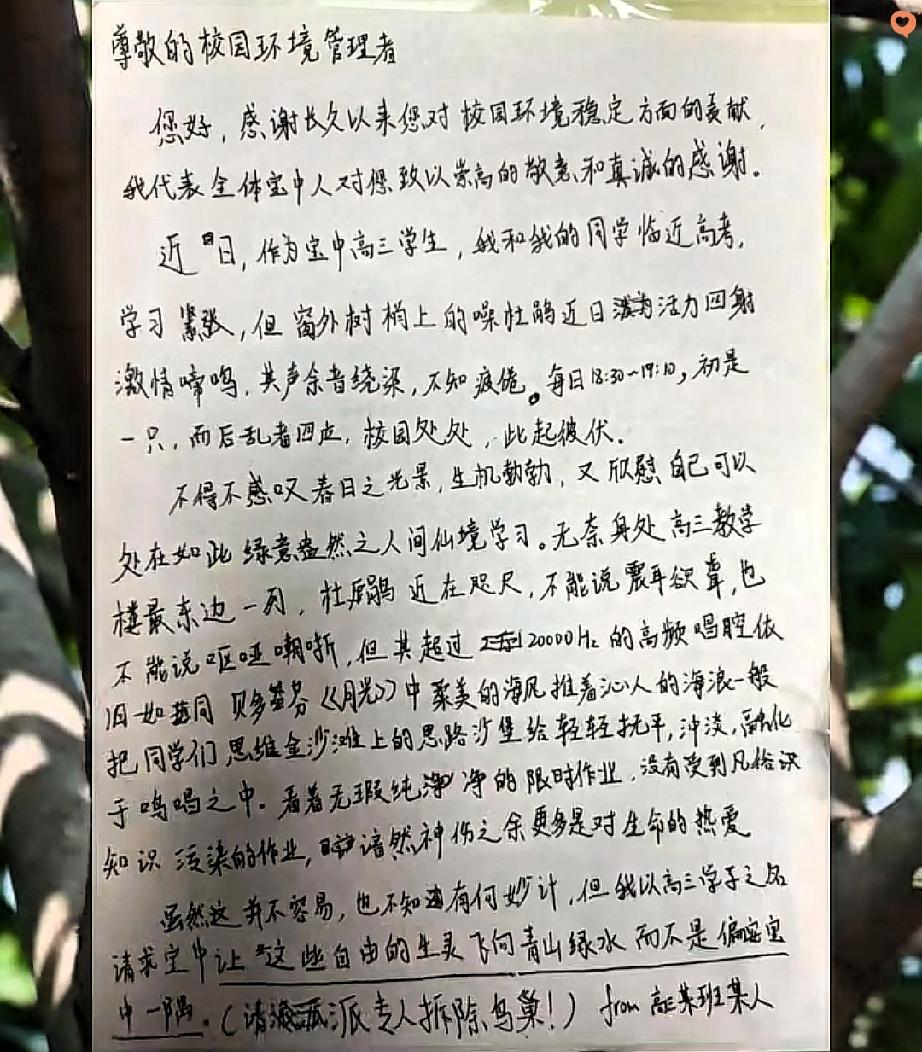 尊敬的校园环境管理者
您好，感谢长久以来您对校园环境稳定方面的贡献，
我代表全体宝中人对您致以崇高的敬意和真诚的感谢。
近日，作为宝中高三学生，我和我的同学临近高考，
学习紧张，但窗外树梢上的噪杜鹃近日活力四射
激情啼鸣，其声余音绕梁，不知疲倦。每日18:30~19:10，初是
一只，而后乱者四点，校园处处，此起彼伏。
不得不感叹春日之光景，生机勃勃，又欣慰自己可以
处在如此绿意盎然之人间仙境学习。无奈身处高三教学
楼最东边一列，杜鹃近在咫尺，不能说震耳欲聋，也
不能说呕哑嘲哳，但其超过20000Hz的高频唱腔依
旧如同贝多芬《月光》中柔美的海风推着沁人的海浪一般
把同学们思维金沙滩上的思路沙堡给轻轻抚平，冲淡，融化
于鸣唱之中。看着无瑕纯净的限时作业，没有受到凡俗识
知识污染的作业，谙然神伤之余更多是对生命的热爱
虽然这并不容易，也不知有何妙计，但我以高三学子之名
请求宝中让这些自由的生灵飞向青山绿水而不是偏安宝
中一隅。（请派专人拆除鸟巢！）from 高三某班某人